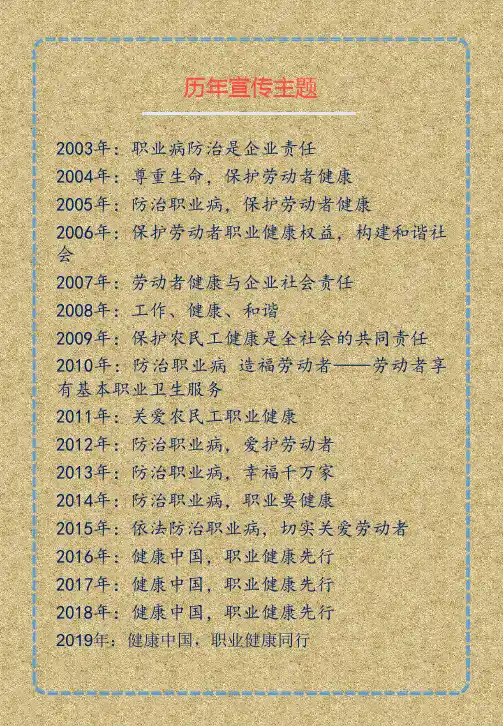 历年宣传主题
2003年：职业病防治是企业责任
2004年：尊重生命，保护劳动者健康
2005年：防治职业病，保护劳动者健康
2006年：保护劳动者职业健康权益，构建和谐社
会
2007年：劳动者健康与企业社会责任
2008年：工作、健康、和谐
2009年：保护农民工健康是全社会的共同责任
2010年：防治职业病 造福劳动者——劳动者享
有基本职业卫生服务
2011年：关爱农民工职业健康
2012年：防治职业病，爱护劳动者
2013年：防治职业病，幸福千万家
2014年：防治职业病，职业要健康
2015年：依法防治职业病，切实关爱劳动者
2016年：健康中国，职业健康先行
2017年：健康中国，职业健康先行
2018年：健康中国，职业健康先行
2019年：健康中国，职业健康同行